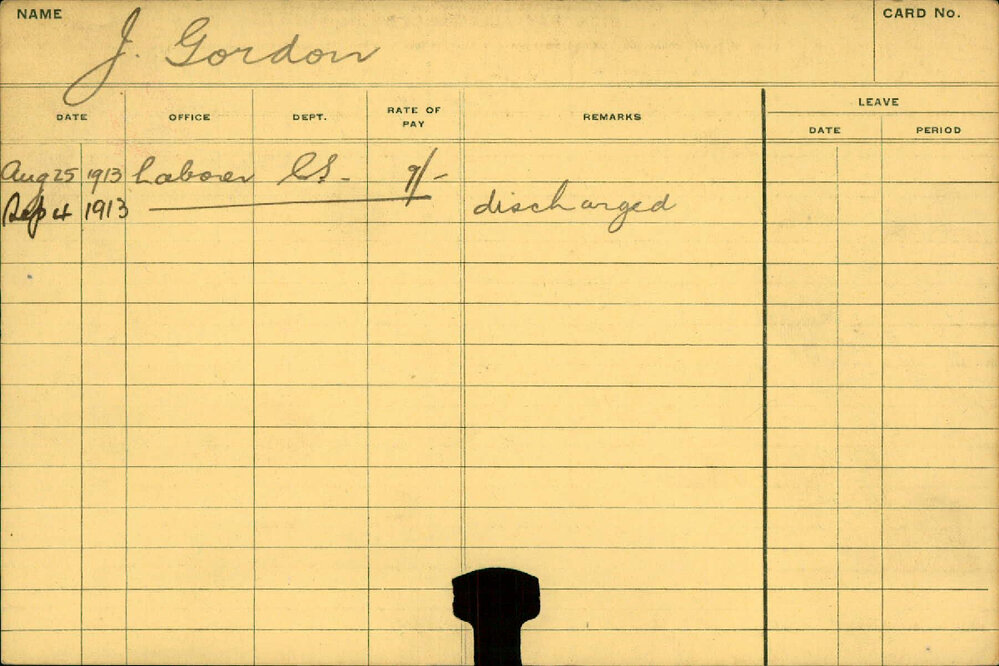 NAME
CARD No.
J. Gordon
DATE OFFICE DEPT. RATE OF PAY REMARKS LEAVE
DATE PERIOD
Aug 25 1913 Laborer C.S. 9/-
Sep 4 1913 discharged